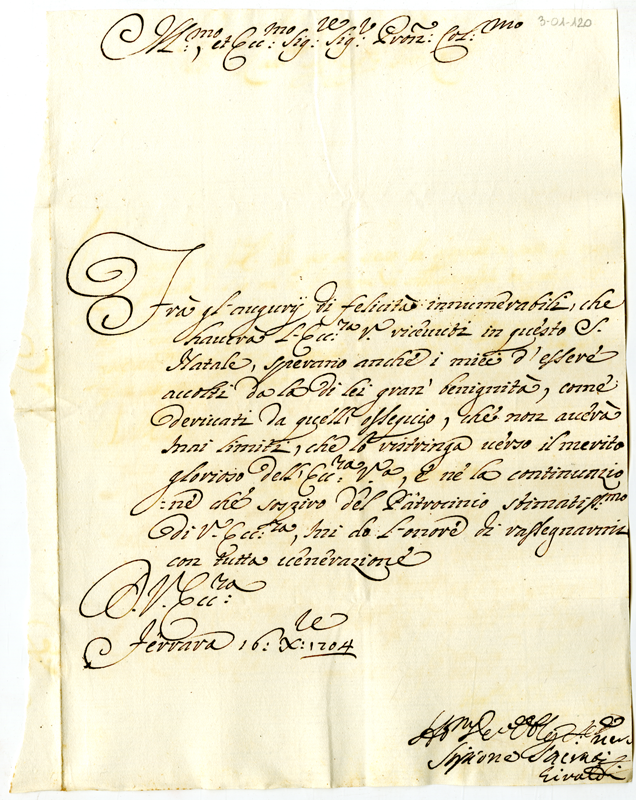 3-01-120
Ill.mo, et Ecc.mo Sig.re Sig.r Pron: Col:mo
Frà gl'augurij di felicità innumerabili, che
haverà L'Ecc.za V. ricevuti in questo S.
Natale, sperano anche i miei d'essere
accolti da la di lei gran' benignità, come
derivati da quell'ossequio, che non averà
mai limiti, che lo ristringa verso il merito
glorioso dell'Ecc.za V.a, e ne la continuazio
:ne che sospiro del Patrocinio stimatiss.mo
di V. Ecc.za, mi do l'onore di rassegnarmi
con tutta venerazione
D. V. Ecc:za
Ferrara 16: X:re 1704
Scipione Sacrati